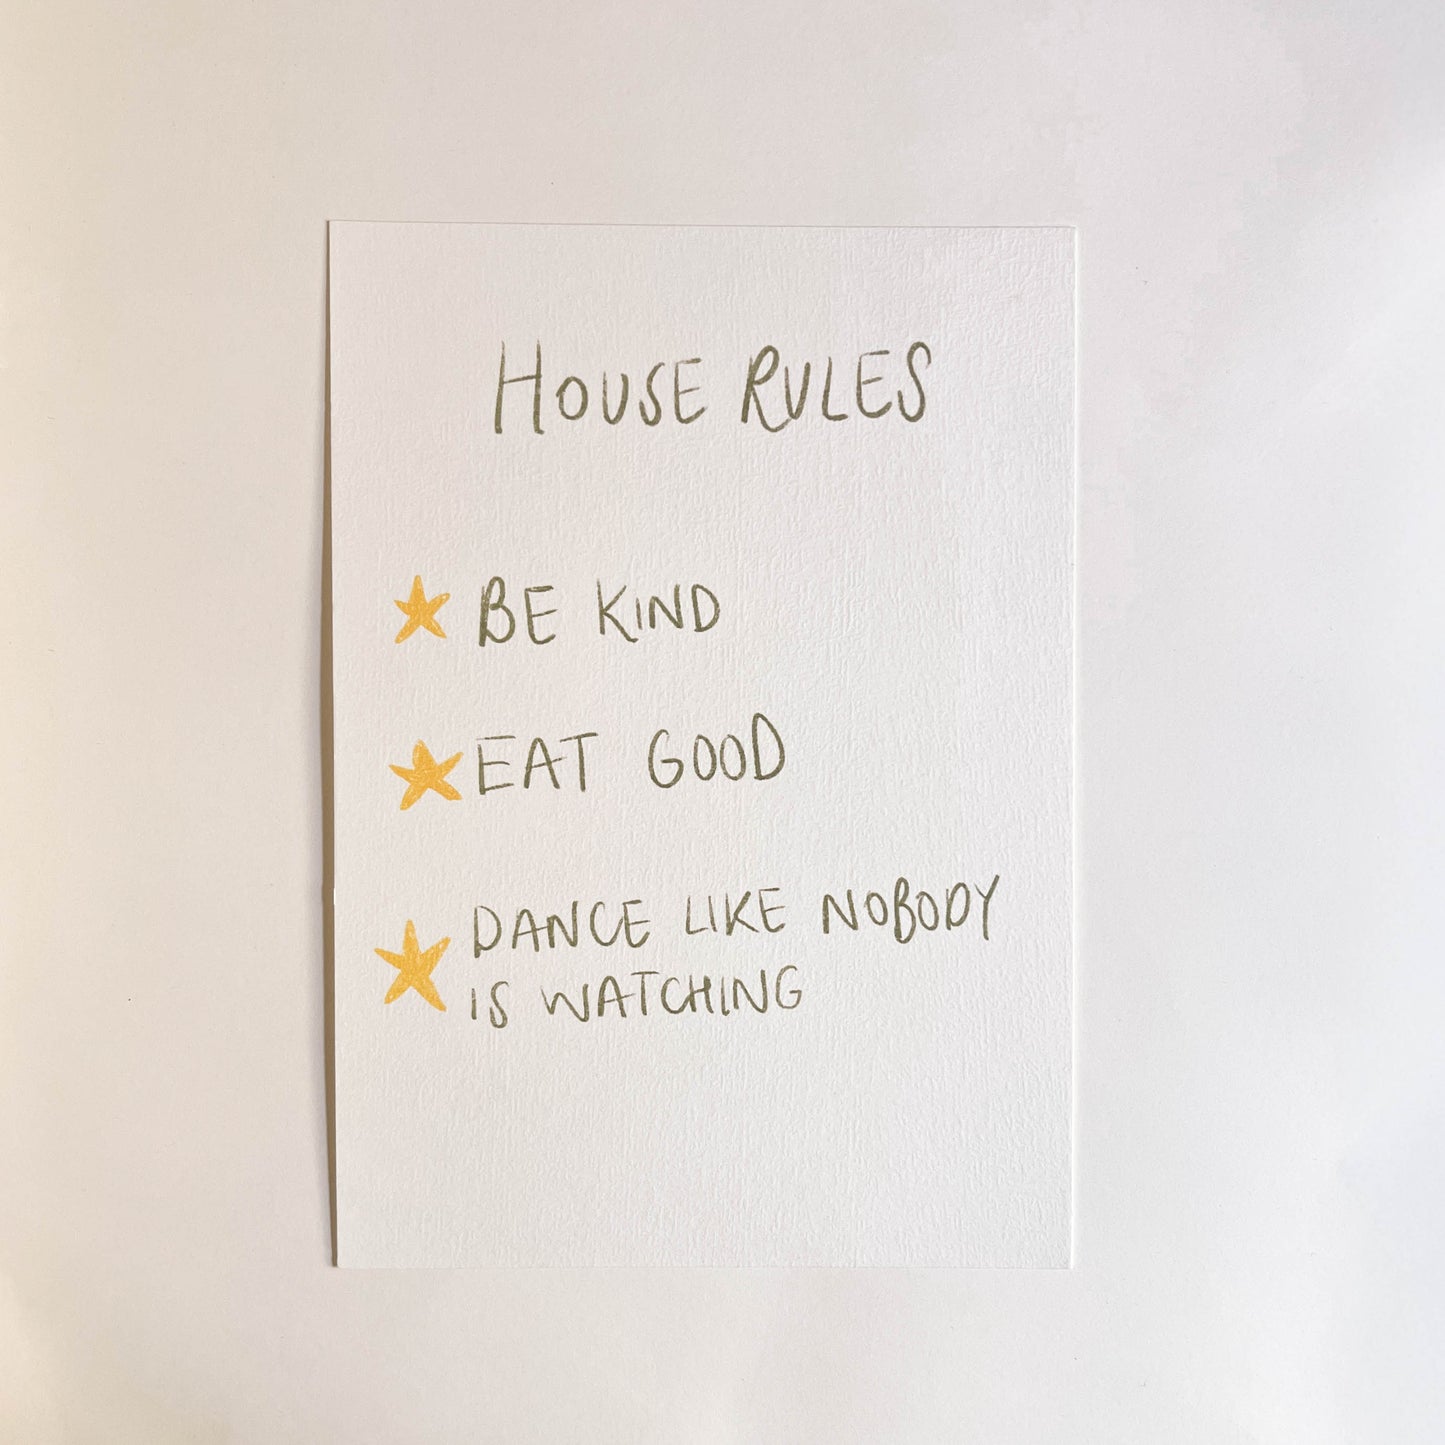 HOUSE RULES
BE KIND
EAT GOOD
DANCE LIKE NOBODY
IS WATCHING